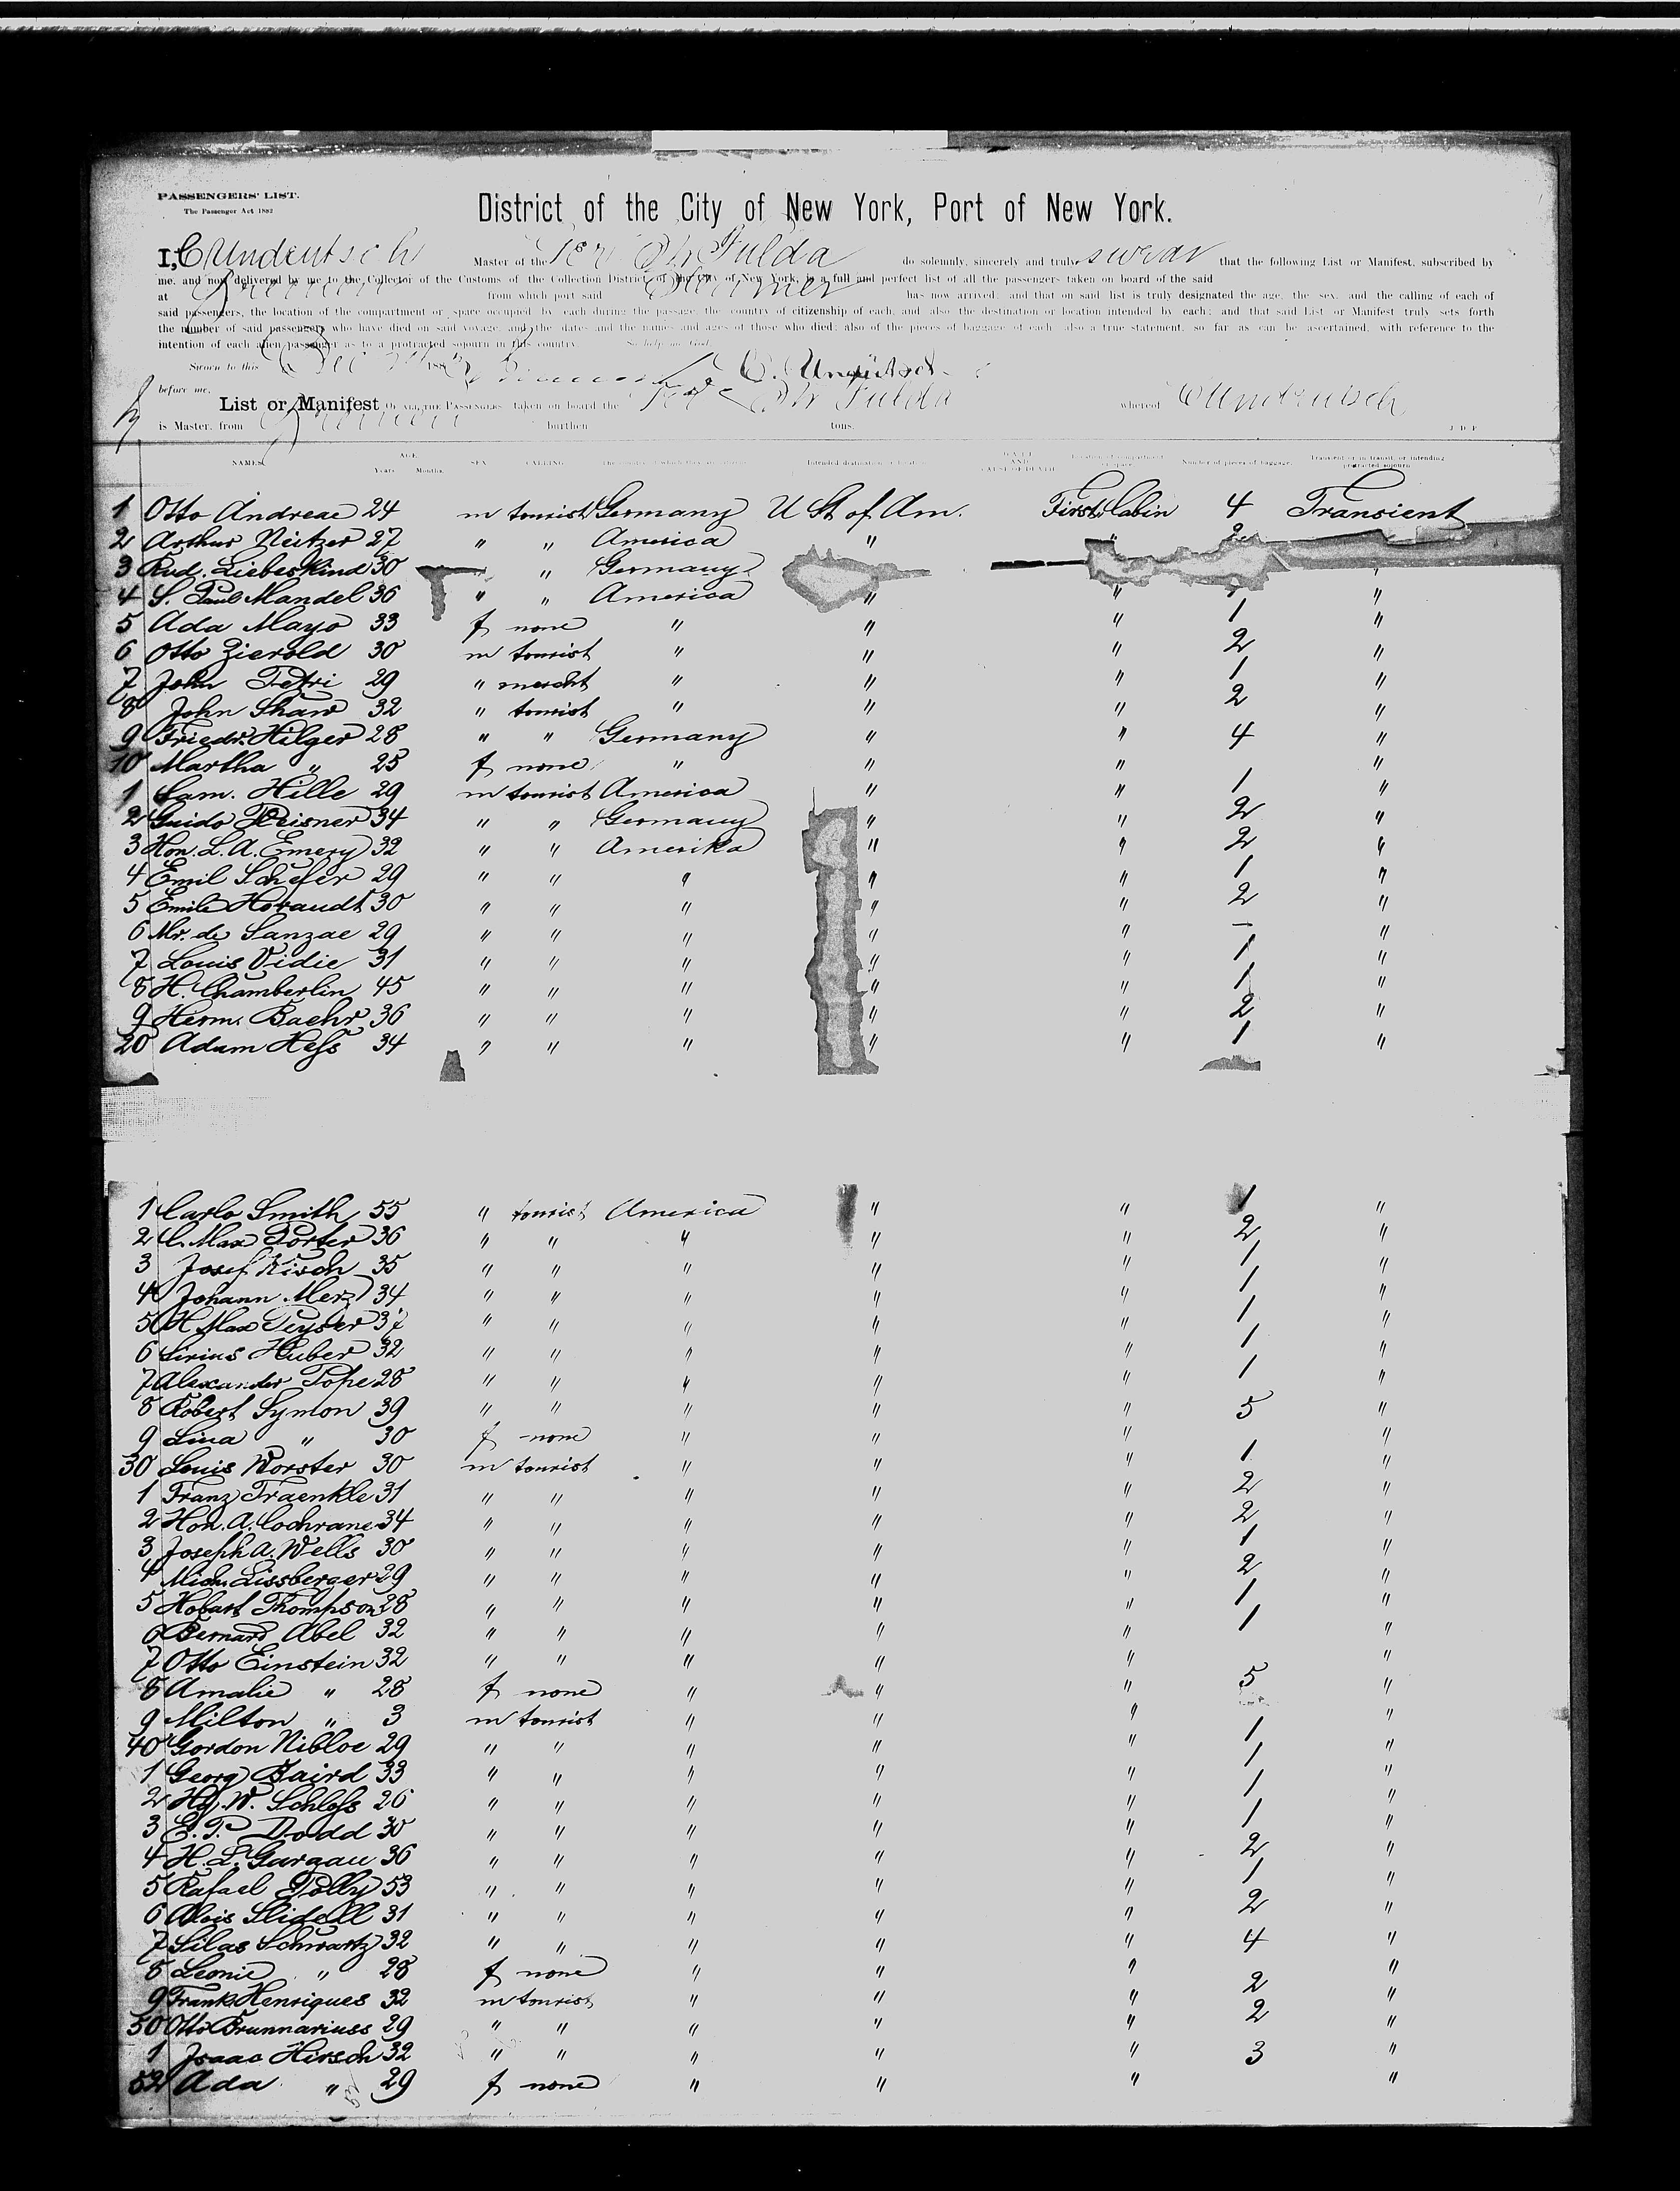 PASSENGERS' LIST.
The Passenger Act 1882
District of the City of New York, Port of New York.
I, C Undeutsch Master of the Fulda do solemnly, sincerely and truly swear that the following List or Manifest, subscribed by
me, and now delivered by me to the Collector of the Customs of the Collection District of the City of New York, is a full and perfect list of all the passengers taken on board of the said
at Bremen from which port said Steamer has now arrived; and that on said list is truly designated the age, the sex, and the calling of each of
said passengers, the location of the compartment or space occupied by each during the passage, the country of citizenship of each, and also the destination or location intended by each; and that said List or Manifest truly sets forth
the number of said passengers who have died on said voyage, and the dates and the names and ages of those who died; also of the pieces of baggage of each; also a true statement, so far as can be ascertained, with reference to the
intention of each alien passenger as to a protracted sojourn in this country. So help me God.
Sworn to this Dec 188 C. Undeutsch
before me,
List or Manifest OF ALL THE PASSENGERS taken on board the Fulda whereof C Undeutsch
is Master, from Bremen burthen tons.
NAMES. AGE Years Months. SEX CALLING The country of which they are citizens Intended destination or location DATE AND CAUSE OF DEATH Location of compartment or space Number of pieces of baggage Transient or in transit, or intending protracted sojourn
1 Otto Andreae 24 m tourist Germany U St of Am. First Cabin 4 Transient
2 Arthur Neitzer 27 " " America " " 2
3 Rud. Liebeskind 30 " Germany "
4 S. Paul Mandel 36 " " America " " 1 "
5 Ada Mayo 33 f none " " " 1 "
6 Otto Zierold 30 m tourist " " " 2 "
7 John Petri 29 " mercht " " " 1 "
8 John Shaw 32 " tourist " " " 2 "
9 Friedr. Hilger 28 " " Germany " " 4 "
10 Martha " 25 f none " " " "
1 Sam. Hille 29 m tourist America " " 1 "
2 Guido Meisner 34 " " Germany " " 2 "
3 Hon. L. A. Emery 32 " " Amerika " " 2 "
4 Emil Schefer 29 " " " " " 1 "
5 Emile Horaudt 30 " " " " " 2 "
6 Mr. de Sanzae 29 " " " " " — "
7 Louis Vidie 31 " " " " " 1 "
8 H. Chamberlin 45 " " " " " 1 "
9 Herm. Baehr 36 " " " " " 2 "
20 Adam Heſs 34 " " " " " 1 "
1 Carlo Smith 55 " tourist America " " 1 "
2 C. Max Porter 36 " " " " " 2 "
3 Josef Kisch 35 " " " " " 1 "
4 Johann Merz 34 " " " " " 1 "
5 H Max Peyser 37 " " " " " 1 "
6 Sirius Huber 32 " " " " " 1 "
7 Alexander Pope 28 " " " " " 1 "
8 Robert Symon 39 " " " " " 5 "
9 Lina " 30 f none " " " "
30 Louis Worster 30 m tourist " " " 1 "
1 Franz Fraenkle 31 " " " " " 2 "
2 Hon. A. Cochrane 34 " " " " " 2 "
3 Joseph A. Wells 30 " " " " " 1 "
4 Mich. Lissberger 29 " " " " " 2 "
5 Hobart Thompson 28 " " " " " 1 "
6 Bernard Abel 32 " " " " " 1 "
7 Otto Einstein 32 " " " " " "
8 Amalie " 28 f none " " " 5 "
9 Milton " 3 m tourist " " " "
40 Gordon Nibloe 29 " " " " " 1 "
1 Georg Baird 33 " " " " " 1 "
2 Hy. W. Schloſs 26 " " " " " 1 "
3 E. P. Dodd 30 " " " " " 1 "
4 H. L. Gurgau 36 " " " " " 2 "
5 Rafael Polly 53 " " " " " 1 "
6 Alois Slidell 31 " " " " " 2 "
7 Silas Schwartz 32 " " " " " 4 "
8 Leonie " 28 f none " " " "
9 Frank Henriques 32 m tourist " " " 2 "
50 Otto Brunnariuss 29 " " " " " 2 "
1 Isaac Hirsch 32 " " " " " 3 "
52 Ada " 29 f none " " " "